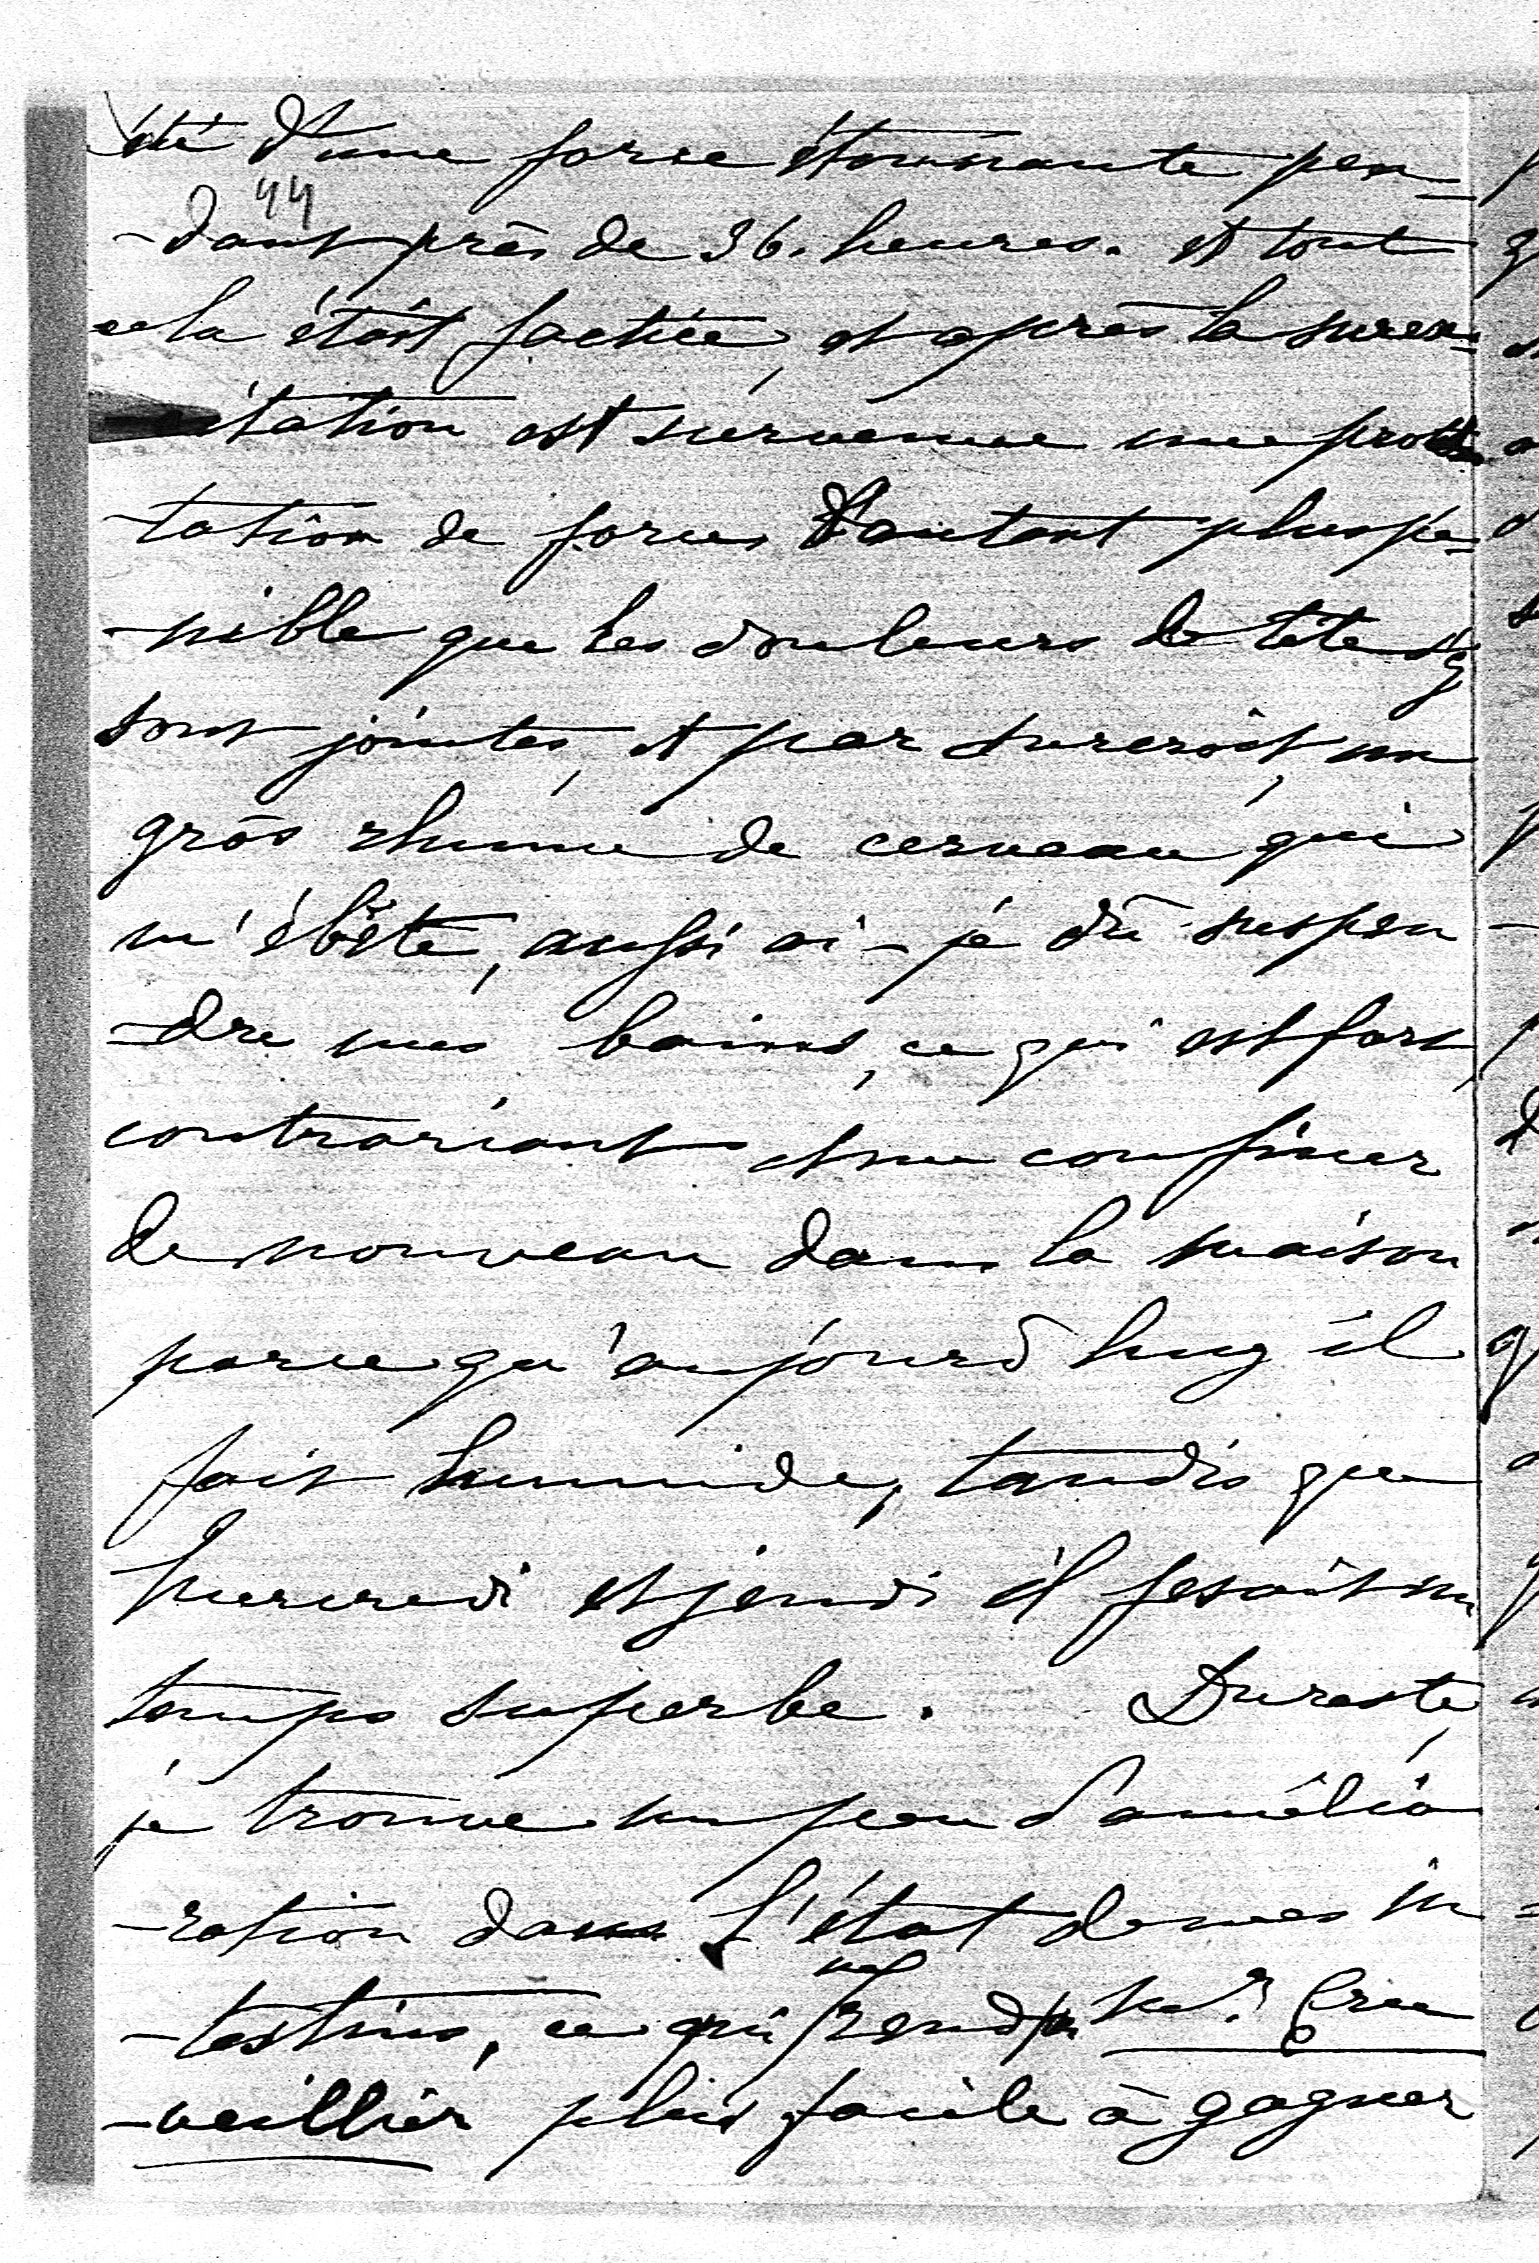 été d'une force étonnante pen=
44
-dant près de 36. heures. et tout
cela était factice, et après la surex=
citation est survenue une pros
tation de forces d'autant plus pé=
-nible que les douleurs de tête s'y
sont jointes, et par surcroît un
gros rhume de cerveau qui
m'ébête, aussi ai-je dû suspen
-dre mes bains, ce qui est fort
contrariant et me confiner
de nouveau dans la maison
parce qu'aujourd'huy il
fait humide, tandis que
mercredi et jeudi il fesait un
temps superbe. Du reste,
je trouve un peu d'amélio
-ration dans l'état de mes in
-testins, ce qui me rend Mr.
-veillier plus facile à gagner